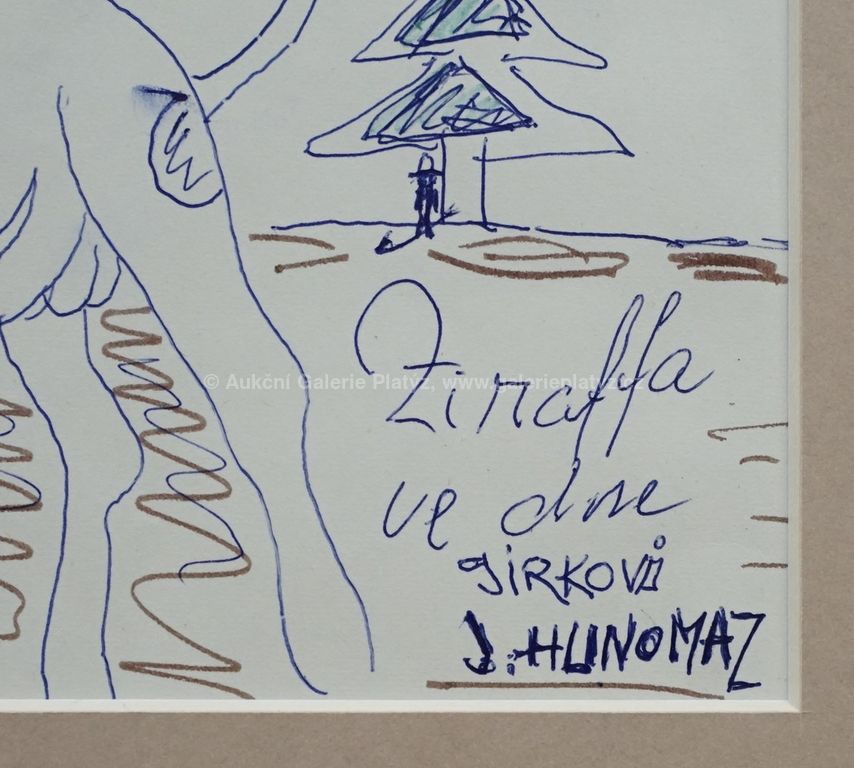 © Aukční Galerie Platýz, www.galerieplatyz.cz
Žiraffa
ve dne
JiRKOVi
J. HLINOMAZ